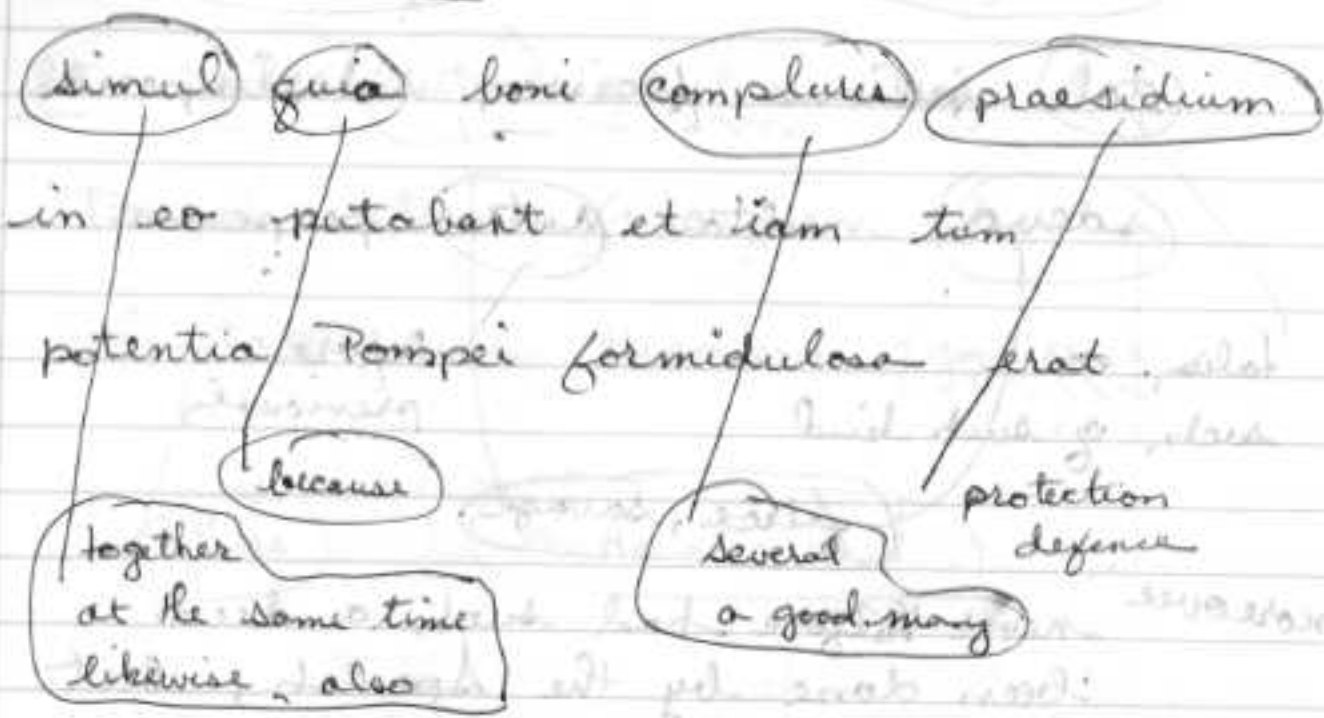 simul quia boni complures praesidium
in eo putabant et iam tum
potentia Pompei formidulosa erat.
because
together
at the same time
likewise, also
several
a good many
protection
defence